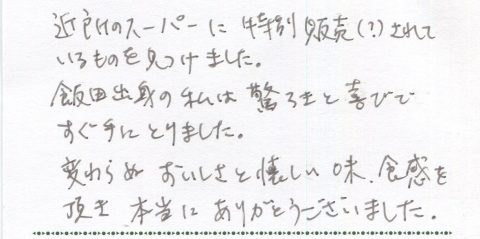 近所のスーパーに特別販売(?)されて
いるものを見つけました。
飯田出身の私は驚ろきと喜びで
すぐ手にとりました。
変わらぬおいしさと懐しい味、食感を
頂き本当にありがとうございました。